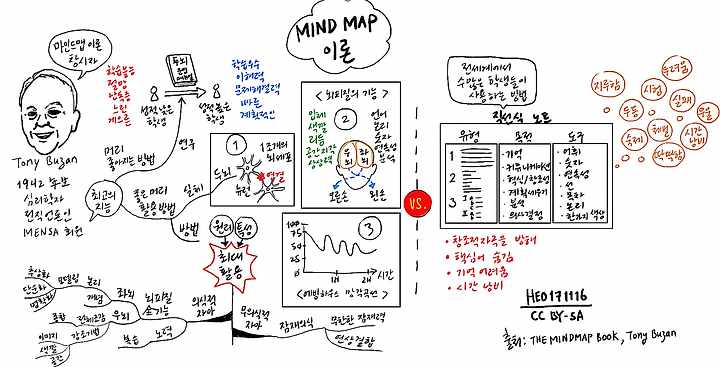 MIND MAP
이론
마인드맵 이론
창시자
Tony Buzan
1942 영국
심리학자
전직 언론인
MENSA 회원
학습불능
절망
난독증
느린
게으른
성적 낮은
학생
두뇌
운영
매뉴얼
성적 높은
학생
학습우수
이해력
문제해결력
빠른
계획적인
최고의
지능
머리
좋아지는 방법
연구
좋은 머리
활용방법
실체
방법
1
1조개의
뇌세포
두뇌
연결
뉴런
원리
특성
최대
활용
< 뇌피질의 기능 >
2
입체
색깔
리듬
공간지각
상상력
언어
논리
숫자
연속성
분석
우
뇌
좌
뇌
오른손
왼손
3
100
75
50
25
0
1H
2H
시간
< 에빙하우스 망각곡선 >
의식적
자아
뇌피질
손기능
좌뇌
논리
개념
모델링
추상화
단순화
명확화
우뇌
전체그림
종합
강조기법
이미지
색깔
공간
노력
복습
무의식적
자아
잠재의식
무한한 잠재력
연상결합
VS.
전세계에서
수많은 학생들이
사용하는 방법
직선식 노트
유형
목적
도구
1
2
3
· 기억
· 커뮤니케이션
· 혁신/창조성
· 계획세우기
· 분석
· 의사결정
· 어휘
· 숫자
· 연속성
· 선
· 목차
· 논리
· 한가지 색상
• 창조적자극을 방해
• 핵심어 숨김
• 기억 어려움
• 시간 낭비
지루함
시험
두려움
두통
실패
숙제
체벌
시간
낭비
딱딱함
HEO171116
CC BY-SA
출처: THE MINDMAP BOOK, Tony Buzan